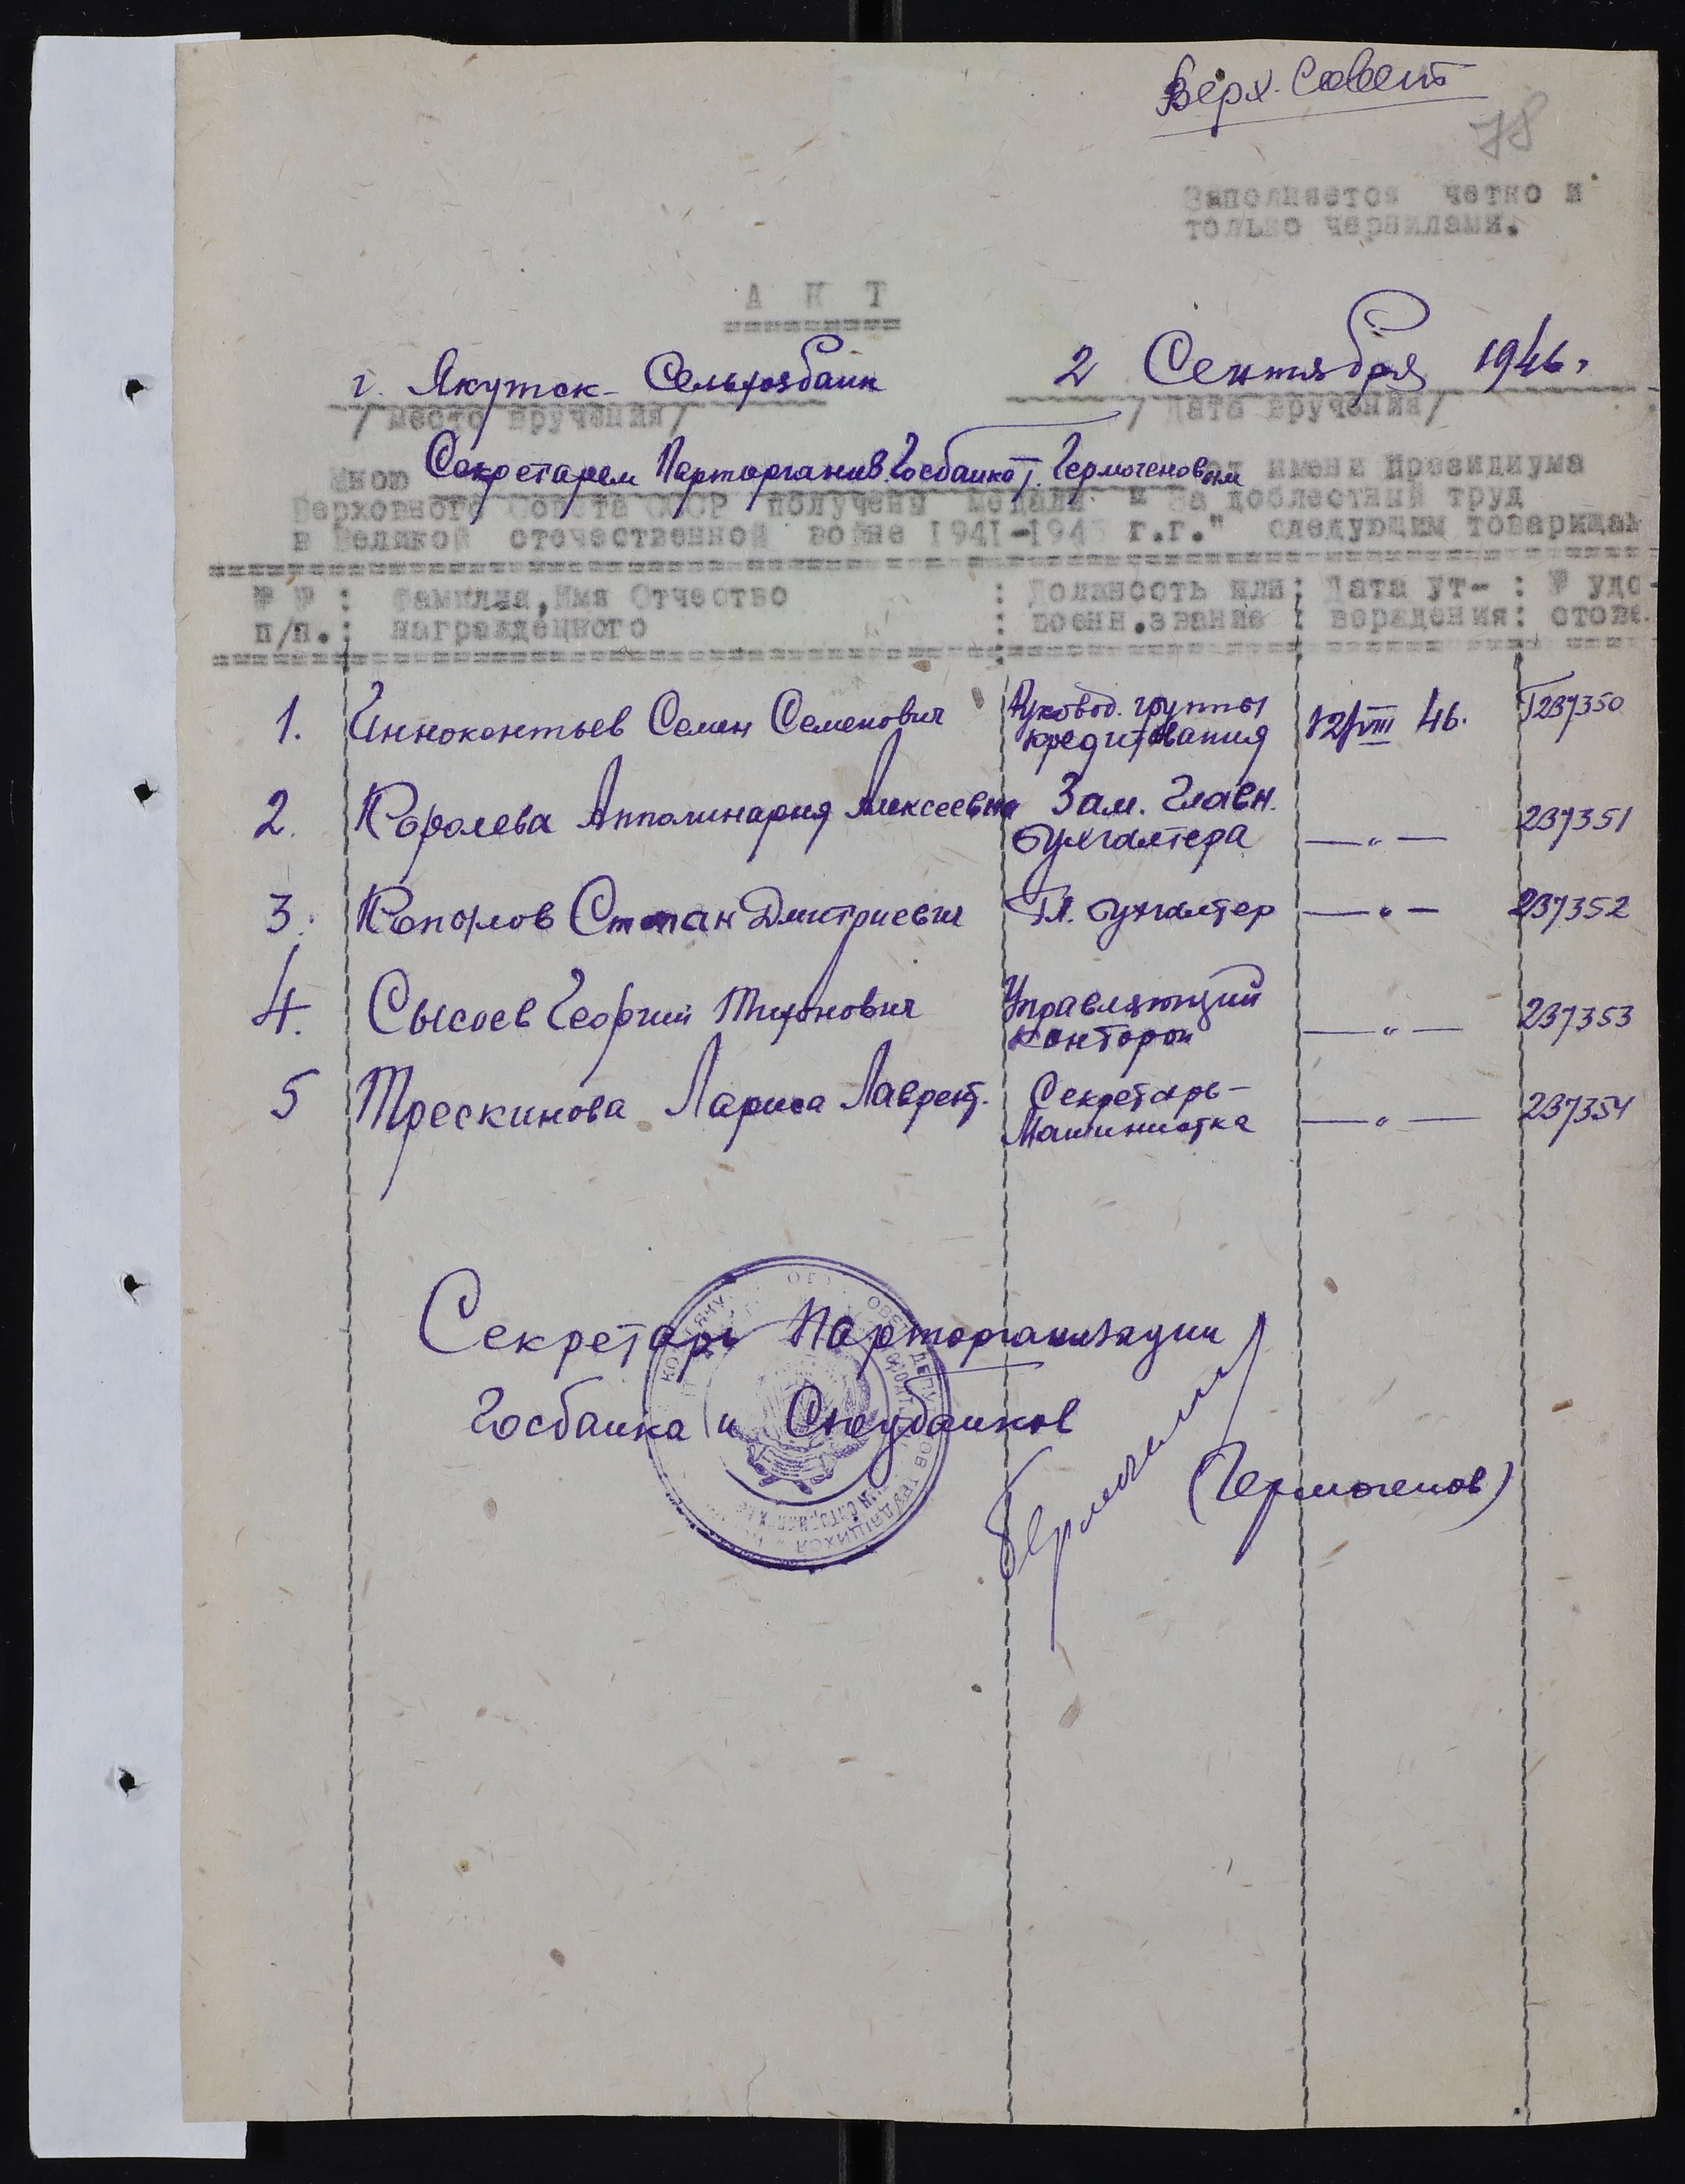 Верх. Совет
78
Заполняется четко и
только чернилами.
А К Т
г. Якутск - Сельхозбанк 2 Сентября 1946 г.
/ место вручения/ / дата вручения/
Мною Секретарем Парторганиз. Госбанка т. Гермогеновым от имени Президиума
Верховного Совета СССР получены медали " За доблестный труд
в Великой отечественной войне 1941-1945 г.г." следующим товарищам
№ № : Фамилия, Имя Отчество : Должность или : Дата ут- : № удо-
п/п. : награжденного : военн.звание : верждения : стове.
1. Иннокентьев Семен Семенович Руковод. группы кредитования 12/VIII 46. Т237350
2. Королева Апполинария Алексеевна Зам. Главн. бухгалтера —„— 237351
3. Копылов Степан Дмитриевич Гл. бухгалтер —„— 237352
4. Сысоев Георгий Тихонович Управляющий конторой —„— 237353
5 Трескинова Лариса Лаврент. Секретарь-Машинистка —„— 237354
Секретарь Парторганизации
Госбанка и Спецбанков
(Гермогенов)